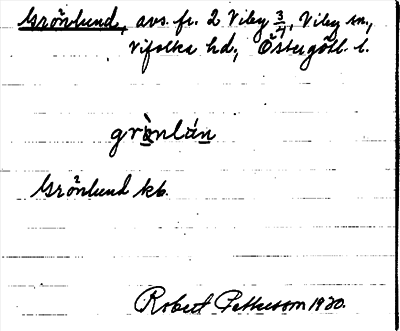 Grönlund, avs. fr. 2 Viby 3/4, Viby sn.,
Vifolka hd., Östergötl. l.
grònlán
Grönlund kb.
Robert Pettersson 1920.